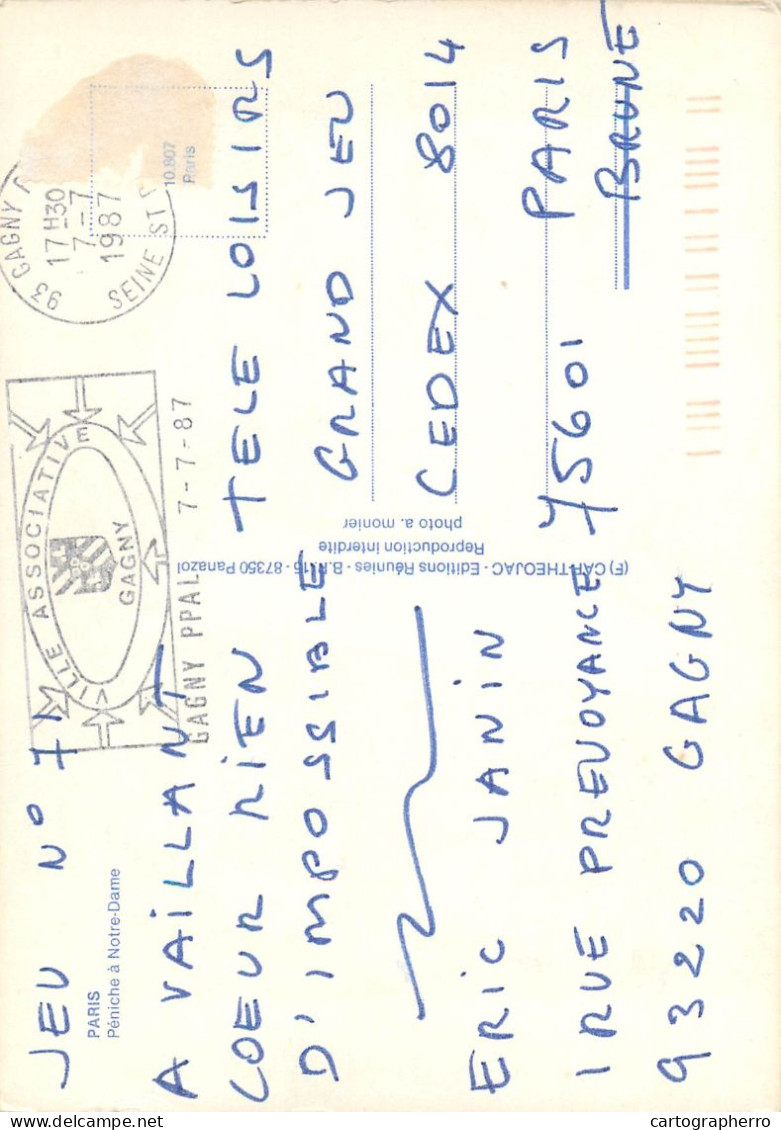 JEU N° 71
PARIS
Péniche à Notre-Dame
A VAILLANT
COEUR RIEN
D'IMPOSSIBLE
ERIC JANIN
1RUE PREVOYANCE
93220 GAGNY
VILLE ASSOCIATIVE
GAGNY
GAGNY PPAL 7-7-87
93 GAGNY
17 H30
7-7
1987
SEINE ST
10.807
Paris
(F) CAP-THEOJAC - Editions Réunies - B.P. 15 - 87350 Panazol
Reproduction interdite
photo a. monier
TELE LOISIRS
GRAND JEU
CEDEX 8014
75601 PARIS
BRUNE
cartographerro